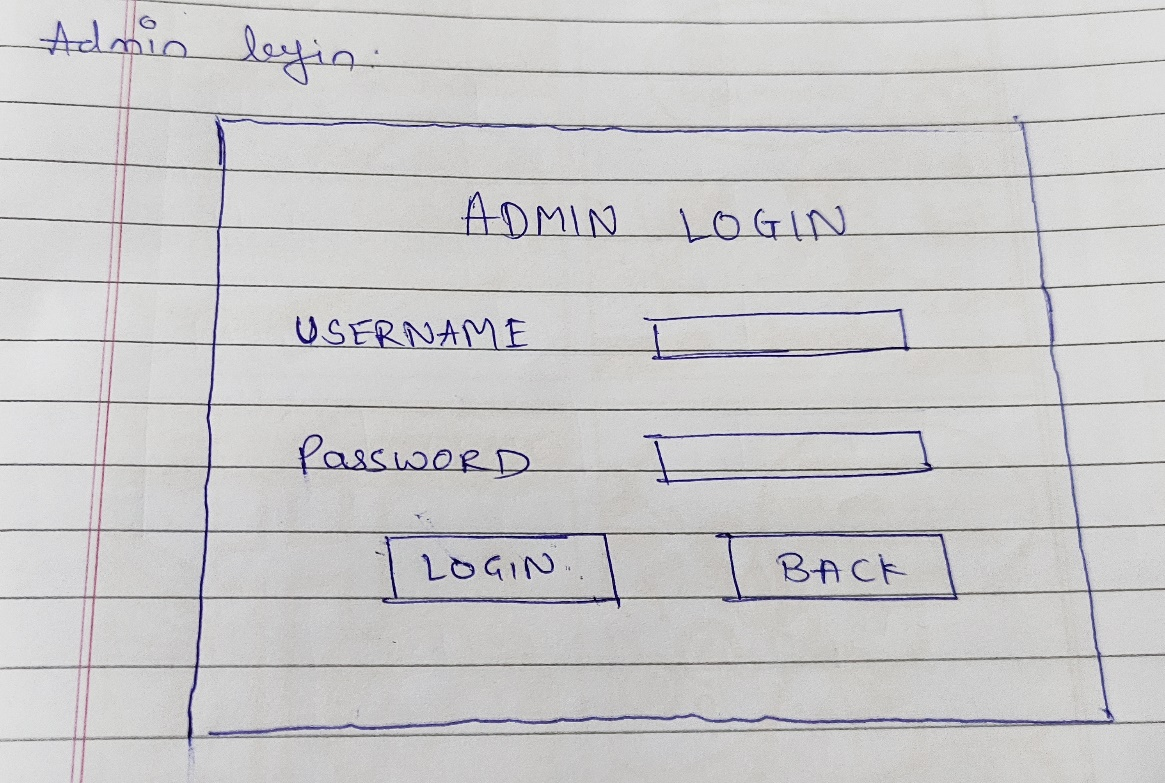 Admin login:
ADMIN LOGIN
USERNAME
PASSWORD
LOGIN BACK